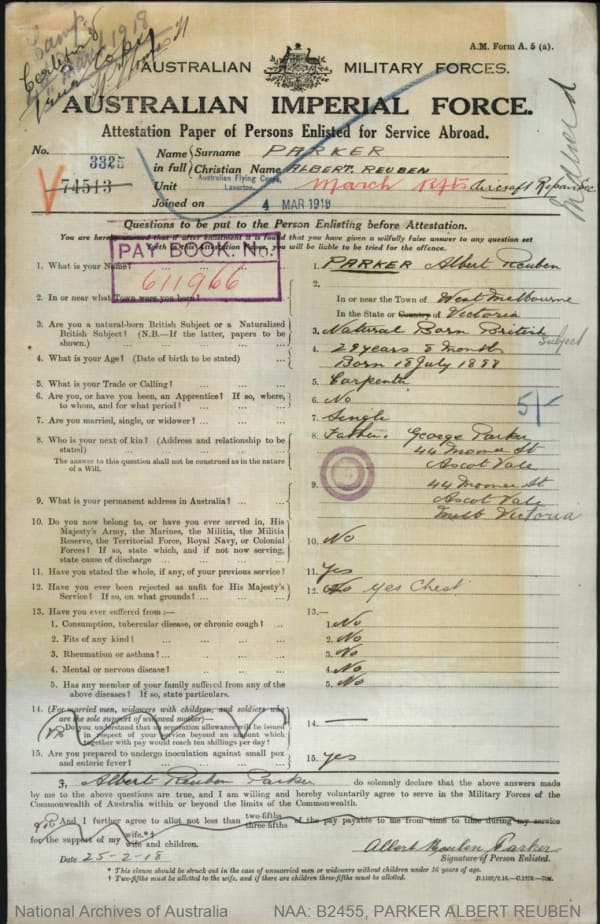 Camp
Carlton 1918
True Copy
A.M. Form A. 5 (a).
AUSTRALIAN MILITARY FORCES.
AUSTRALIAN IMPERIAL FORCE.
Attestation Paper of Persons Enlisted for Service Abroad.
No. 3325
74513
Name in full { Surname PARKER
Christian Name ALBERT. REUBEN
Unit Australian Flying Corps, Laverton. March Rfts Aircraft
Joined on 4 MAR 1918
Questions to be put to the Person Enlisting before Attestation.
You are hereby warned that if after enlistment it is found that you have given a wilfully false answer to any question set
forth in this Attestation Paper, you will be liable to be tried for the offence.
PAY BOOK. No.
611966
1. What is your Name? ... 1. PARKER Albert Reuben
2. In or near what Town were you born? ... 2. In or near the Town of West Melbourne
In the State or County of Victoria
3. Are you a natural-born British Subject or a Naturalized British Subject? (N.B.—If the latter, papers to be shown.) 3. Natural Born British Subject
4. What is your Age? (Date of birth to be stated) 4. 29 years 8 month
Born 18 July 1888
5. What is your Trade or Calling? ... 5. Carpenter
6. Are you, or have you been, an Apprentice? If so, where, to whom, and for what period? ... 6. No
5/-
7. Are you married, single, or widower? ... 7. Single
8. Who is your next of kin? (Address and relationship to be stated) 8. Father. George Parker
The answer to this question shall not be construed as in the nature of a Will.
44 Moonee St
Ascot Vale
9. What is your permanent address in Australia? ... 9. 44 Moonee St
Ascot Vale
Melb Victoria
10. Do you now belong to, or have you ever served in, His Majesty's Army, the Marines, the Militia, the Militia Reserve, the Territorial Force, Royal Navy, or Colonial Forces? If so, state which, and if not now serving, state cause of discharge ... 10. No
11. Have you stated the whole, if any, of your previous service? 11. yes
12. Have you ever been rejected as unfit for His Majesty's Service? If so, on what grounds? ... 12. No yes Chest
13. Have you ever suffered from:— 13.—
1. Consumption, tubercular disease, or chronic cough? .. 1. No
2. Fits of any kind? ... 2. No
3. Rheumatism or asthma? ... 3. No
4. Mental or nervous disease? ... 4. No
5. Has any member of your family suffered from any of the above diseases? If so, state particulars. 5. No
14. (For married men, widowers with children, and soldiers who are the sole support of widowed mother)—
Do you understand that no separation allowance will be issued in respect of your service beyond an amount which together with pay would reach ten shillings per day? 14. —
15. Are you prepared to undergo inoculation against small pox and enteric fever? 15. yes
I, Albert Reuben Parker do solemnly declare that the above answers made
by me to the above questions are true, and I am willing and hereby voluntarily agree to serve in the Military Forces of the
Commonwealth of Australia within or beyond the limits of the Commonwealth.
And I further agree to allot not less than two-fifths three-fifths of the pay payable to me from time to time during my service
for the support of my wife.*† wife and children.
Albert Reuben Parker
Date 25-2-18 Signature of Person Enlisted.
* This clause should be struck out in the case of unmarried men or widowers without children under 16 years of age.
† Two-fifths must be allotted to the wife, and if there are children three-fifths must be allotted.
National Archives of Australia NAA: B2455, PARKER ALBERT REUBEN